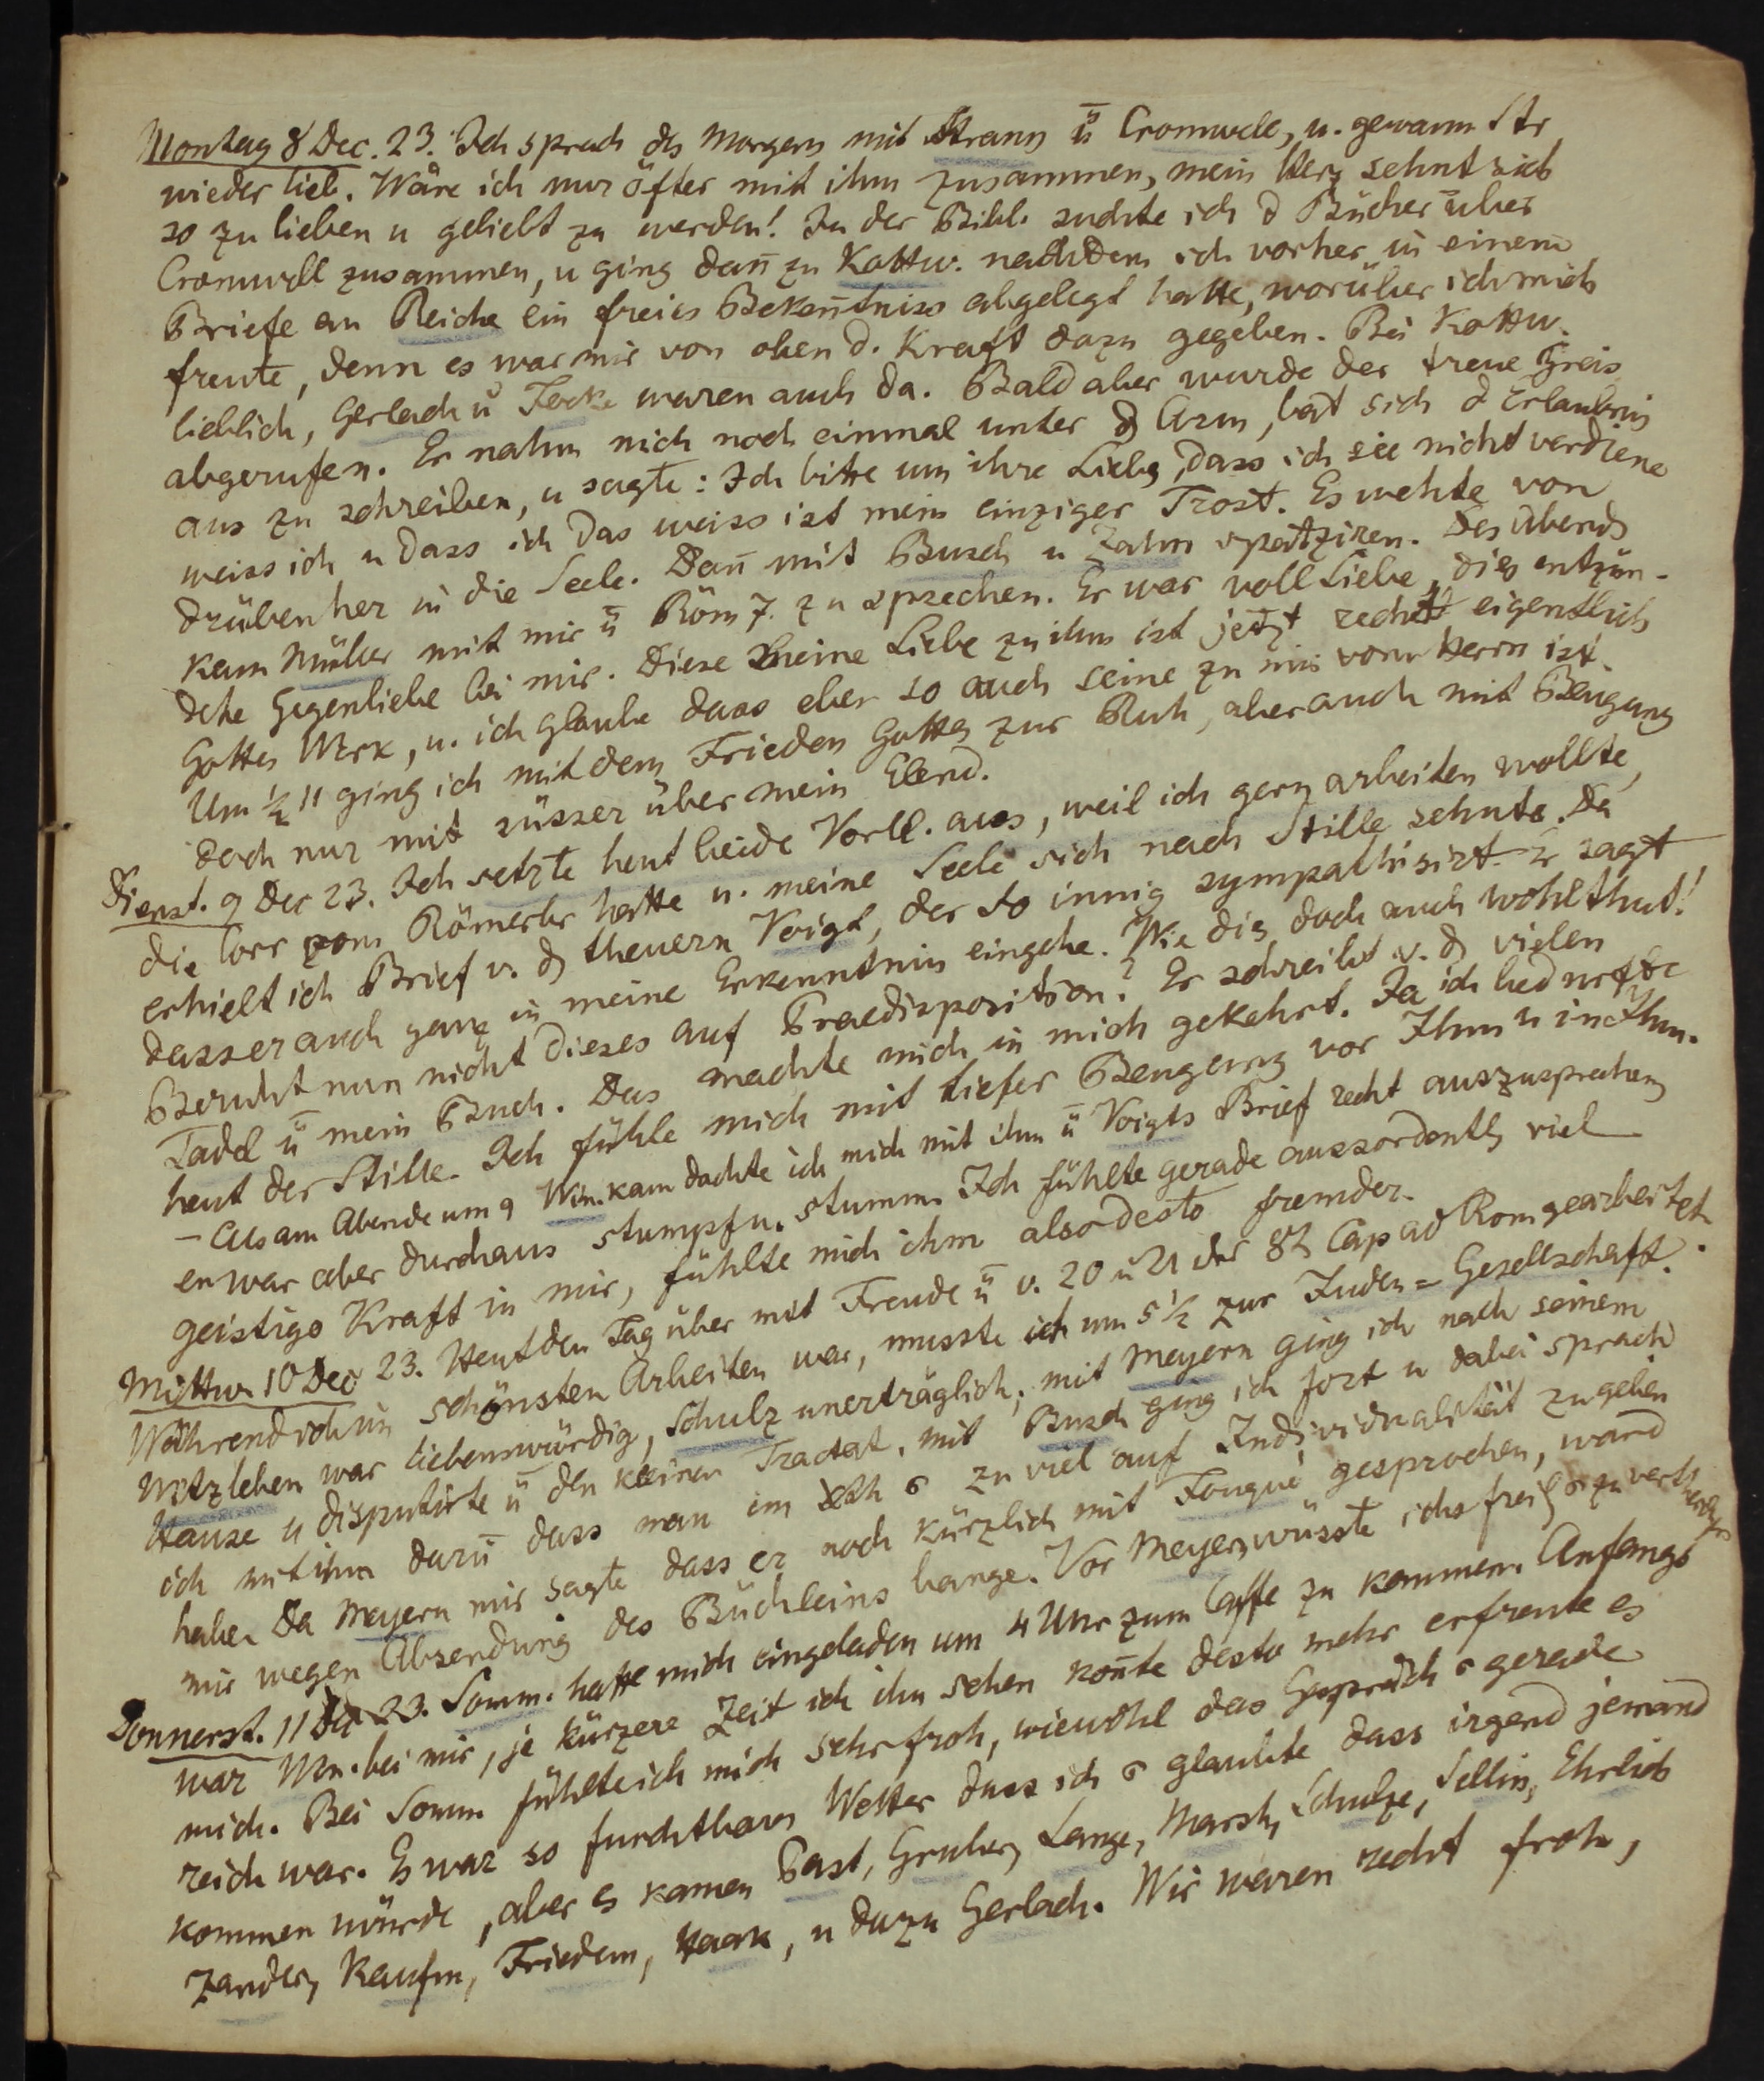 Montag 8 Dec. 23. Ich sprach ds Morgens mit Strauss ü Cromwell, u. gewann Str
wieder lieb. Wäre ich nur öfter mit ihm zusammen, mein Herz sehnt sich
so zu lieben u geliebt zu werden! In der Bibl. suchte ich d Bücher über
Cromwell zusammen, u ging dan̄ zu Kottw. nachdem ich vorher in einem
Briefe an Reiche ein freies Beken̄tniss abgelegt hatte, worüber ich mich
freute, denn es war mir von oben d. Kraft dazu gegeben. Bei Kottw.
lieblich, Gerlach u Focke waren auch da. Bald aber wurde der treue Greis
abgerufen. Er nahm mich noch einmal unter d Arm, bat sich d Erlaubnis
aus zu schreiben, u sagte: Ich bitte um ihre Liebe, dass ich sie nicht verdiene
weiss ich u dass ich das weiss ist mein einziger Trost. Es wehte von
drüben her in die Seele. Dan̄ mit Busch u Zahn spatziren. Des Abends
kam Müller mit mir ü Röm 7. zu sprechen. Er war voll Liebe, dies entzün-
dete Gegenliebe bei mir. Diese meine Liebe zu ihm ist jetzt recht eigentlich
Gottes Werk, u. ich glaube dass eben so auch seine zu mir vom Herrn ist.
Um ½ 11 ging ich mit dem Frieden Gottes zur Ruh, aber auch mit Beugung
doch nur mit süsser über mein Elend.
Dienst. 9 Dec 23. Ich setzte heut beide Vorll. aus, weil ich gern arbeiten wollte,
die Corr vom Römerbr hatte u. meine Seele sich nach Stille sehnte. Da
erhielt ich Brief v. d theuern Voigt, der so innig sympathisirt. Er sagt
dass er auch ganz in meine Erkenntnis eingehe. Wie dies doch auch wohlthut!
Beruht nun nicht dieses auf Praedisposition? Er schreibt v. d vielen
Tadel ü mein Buch. Das machte mich in mich gekehrt. Ja ich bedurfte
heut der Stille. Ich fühle mich mit tiefer Beugung vor Ihm u in Ihm.
– Als am Abende um 9 Wn. kam dachte ich mich mit ihm ü Voigts Brief recht auszusprechen
er war aber durchaus stumpf u. stumm. Ich fühlte gerade aussordentl viel
geistige Kraft in mir, fühlte mich ihm also desto fremder.
Mittw. 10 Dec 23. Heut den Tag über mit Freude ü v. 20 u 21 der 8t Cap ad Rom gearbeitet.
Während ich im schönsten Arbeiten war, musste ich um 5½ zur Juden=Gesellschaft.
Witzleben war liebenswürdig, Schulz unerträglich; mit Meyern ging ich nach seinem
Hause u disputirte ü den kleinen Tractat, mit Busch ging ich fort u dabei sprach
ich mit ihm darü dass man im zu viel auf Individualität zu geben
habe. Da Meyern mir sagte dass er noch kürzlich mit Fouqué gesprochen, ward
mir wegen Absendung des Büchleins bange. Vor Meyern wüsste ichs frei zu vertheidigen
Donnerst. 11 Dec 23. Somm. hatte mich eingeladen um 4 Uhr zum Caffe zu kommen. Anfangs
war Wn. bei mir, je kürzere Zeit ich ihn sehen kon̄te desto mehr erfreute es
mich. Bei Somm fühlte ich mich sehr froh, wiewohl das Gespräch gerade
reich war. Es war so furchtbares Wetter dass ich glaubte dass irgend jemand
kommen würde, aber es kamen Past, Gruber, Lange, Marsh, Schulze, Sellin, Ehrlich
Zander, Kaufm, Friedem, Haak, u dazu Gerlach. Wir waren recht froh,